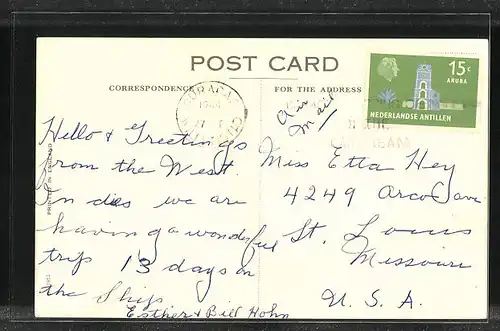 POST CARD
CORRESPONDENCE
FOR THE ADDRESS
15c
ARUBA
NEDERLANDSE ANTILLEN
CURACAO
Air
mail
Hello & Greetings
from the West
Indies we are
having a wonderful
trip 13 days on
the Ship
Esther & Bill Hohn
Miss Etta Hey
4249 Arco ave
St. Louis
Missouri
U. S. A.
PRINTED IN ENGLAND